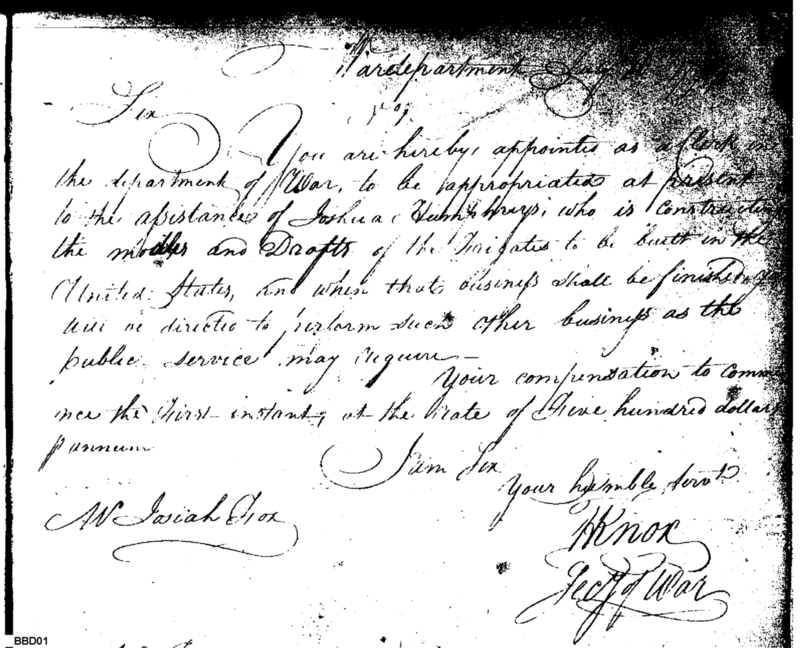 War department July
Sir
You are hereby appointed as a Clerk in
the department of War, to be appropriated at present
to the assistance of Joshua Humphreys, who is constructing
the models and Drafts of the Frigates to be built in the
United States, and when that business shall be finished you
will be directed to perform such other business as the
public service may require—
Your compensation to comme
nce the First instant, at the rate of Five hundred dollars
p annum
I am Sir
Your humble Servt
HKnox
Secy of War
Mr Josiah Fox
BBD01